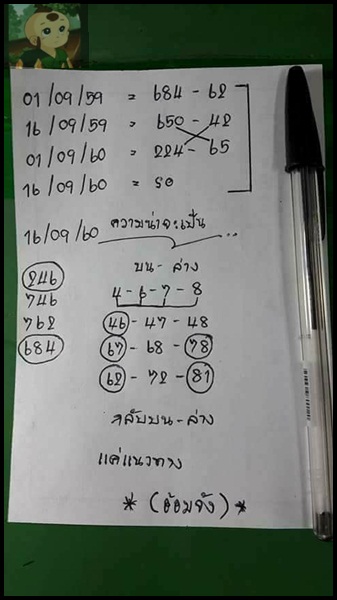 01/09/59 = 684 - 62
16/09/59 = 650 - 42
01/09/60 = 224 - 65
16/09/60 = รอ
16/09/60 ความน่าจะเป็น ...
บน - ล่าง
246
4 - 6 - 7 - 8
746
762
46 - 47 - 48
684
67 - 68 - 78
62 - 72 - 81
กลับบน - ล่าง
แค่แนวทาง
* (อ้อมจัง) *